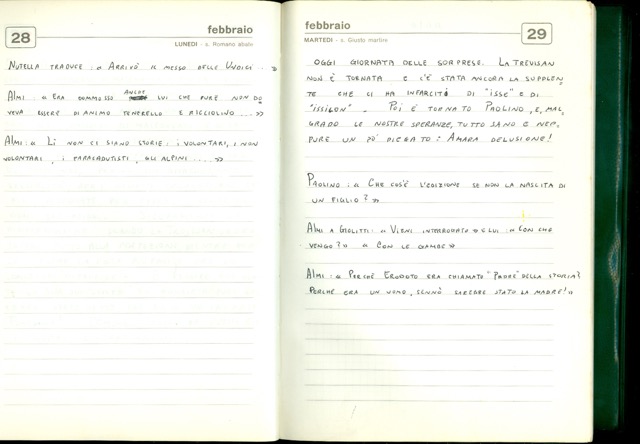 28
febbraio
LUNEDÌ - s. Romano abate
NUTELLA TRADUCE: « ARRIVÒ IL MESSO DELLE UNDICI ... »
ALMI: « ERA COMMOSSO ANCHE LUI CHE PURE NON DO
VEVA ESSERE DI ANIMO TENERELLO E RICCIOLINO ... »
ALMI: « LÌ NON CI SIANO STORIE: I VOLONTARI, I NON
VOLONTARI, I PARACADUTISTI, GLI ALPINI ..... »
febbraio
MARTEDÌ - s. Giusto martire
29
OGGI GIORNATA DELLE SORPRESE. LA TREVISAN
NON È TORNATA E C'È STATA ANCORA LA SUPPLEN-
TE CHE CI HA INFARCITO DI "ISSE" E DI
"ISSILON". POI È TORNATO PAOLINO, E, MAL-
GRADO LE NOSTRE SPERANZE, TUTTO SANO E NEP-
PURE UN PO' PIEGATO: AMARA DELUSIONE!
PAOLINO: « CHE COS'È L'EDIZIONE SE NON LA NASCITA DI
UN FIGLIO? »
ALMI A GIOLITTI: « VIENI INTERROGATO » E LUI: « CON CHE
VENGO? » « CON LE GAMBE »
ALMI: « PERCHÈ ERODOTO ERA CHIAMATO "PADRE" DELLA STORIA?
PERCHÈ ERA UN UOMO, SENNÒ SAREBBE STATO LA MADRE! »